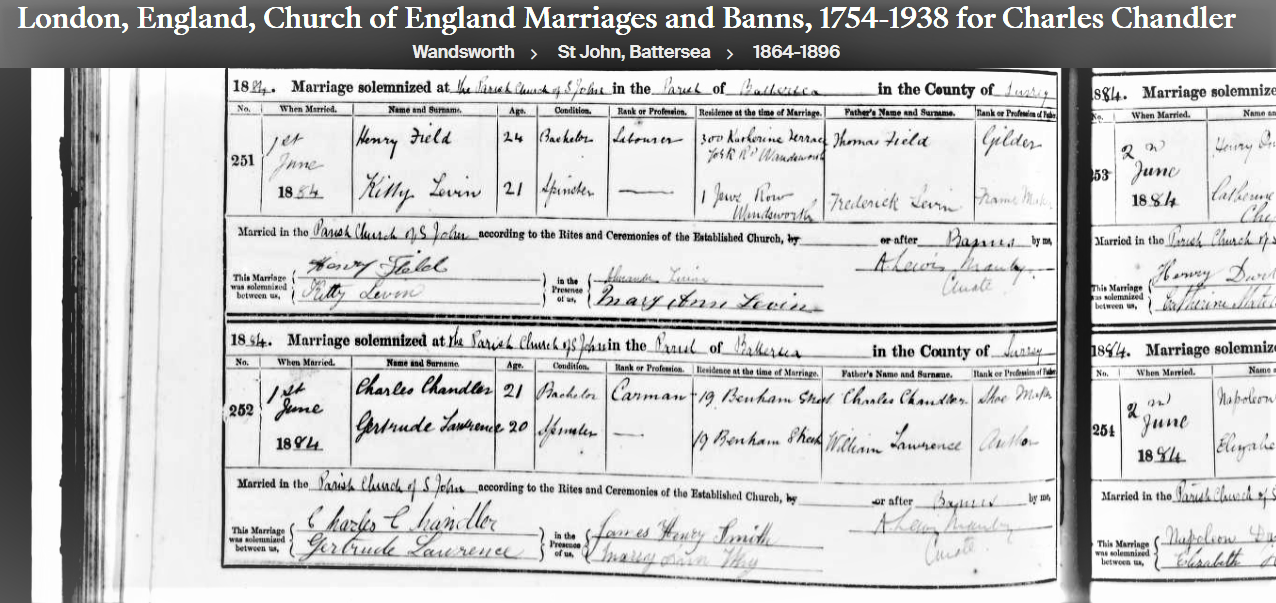 London, England, Church of England Marriages and Banns, 1754-1938 for Charles Chandler
Wandsworth > St John, Battersea > 1864-1896
1884. Marriage solemnized at the Parish Church of S John in the Parish of Battersea in the County of Surrey
No. When Married. Name and Surname. Age. Condition. Rank or Profession. Residence at the time of Marriage. Father's Name and Surname. Rank or Profession of Father
251 1st June 1884
Henry Field 24 Bachelor Labourer 300 Katherine Terrace York Rd Wandsworth Thomas Field Gilder
Kitty Levin 21 Spinster — 1 Row Wandsworth Frederick Levin Frame
Married in the Parish Church of S John according to the Rites and Ceremonies of the Established Church, by or after Banns by me,
A Lewis Manby
Curate
This Marriage was solemnized between us, Henry Field
Kitty Levin
in the Presence of us, Levin
Mary Ann Levin
1884. Marriage solemnized at the Parish Church of S John in the Parish of Battersea in the County of Surrey
No. When Married. Name and Surname. Age. Condition. Rank or Profession. Residence at the time of Marriage. Father's Name and Surname. Rank or Profession of Father
252 1st June 1884
Charles Chandler 21 Bachelor Carman 19 Benham Street Charles Chandler Shoe Maker
Gertrude Lawrence 20 Spinster — 19 Benham Street William Lawrence Author
Married in the Parish Church of S John according to the Rites and Ceremonies of the Established Church, by or after Banns by me,
A Lewis Manby
Curate
This Marriage was solemnized between us, Charles Chandler
Gertrude Lawrence
in the Presence of us, James Henry Smith
1884. Marriage solemnize
No. When Married. Name an
53 2nd June 1884
Henry
Catherine
Married in the Parish Church of S
This Marriage was solemnized between us, Henry
Catherine
1884. Marriage solemnize
No. When Married. Name a
254 2nd June 1884
Napoleon
Married in the Parish Church of S
This Marriage was solemnized between us, Napoleon
Elizabeth